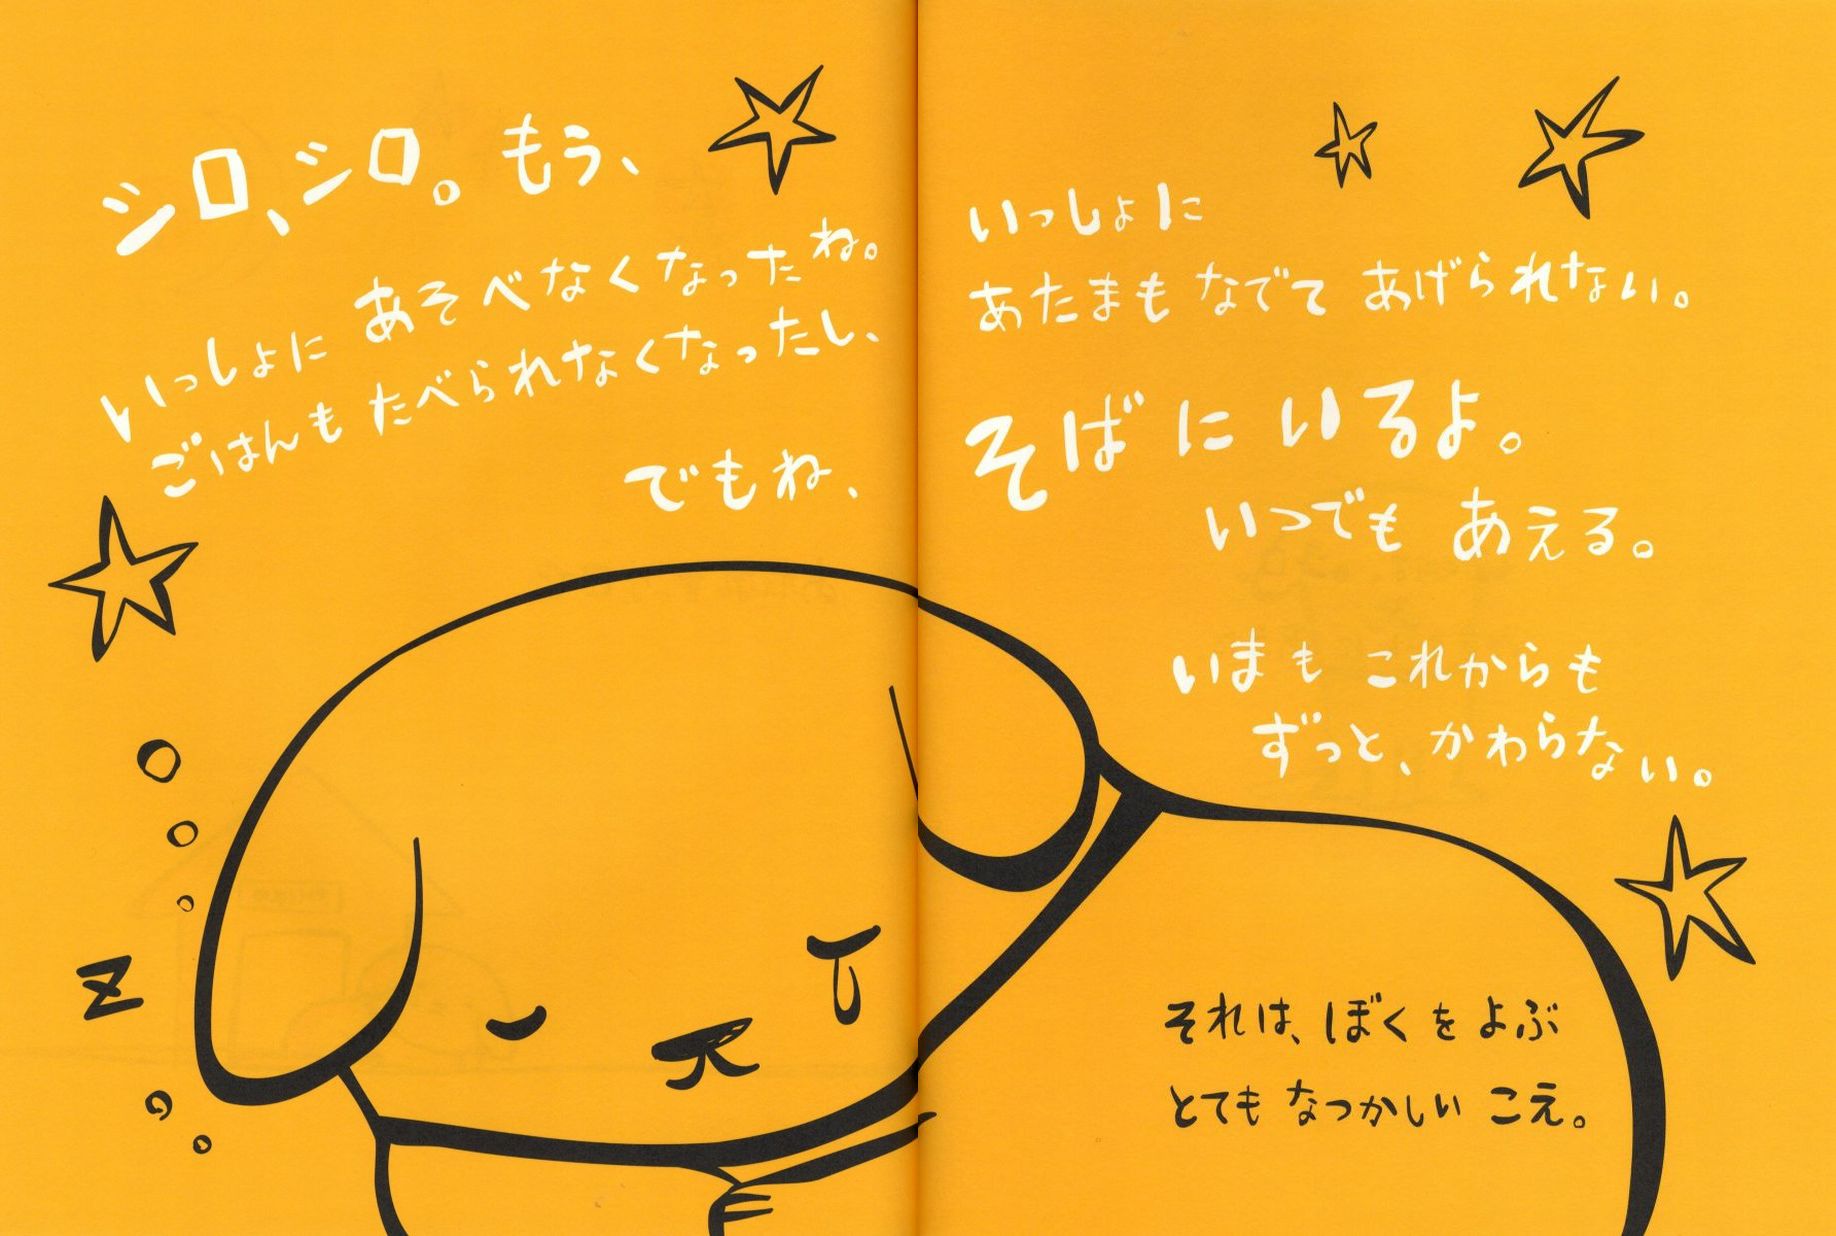 シロ、シロ。もう、
いっしょに あそべなくなったね。
ごはんも たべられなくなったし、
でもね、
いっしょに
あたまも なでて あげられない。
そばに いるよ。
いつでも あえる。
いまも これからも
ずっと、かわらない。
z
それは、ぼくを よぶ
とても なつかしい こえ。